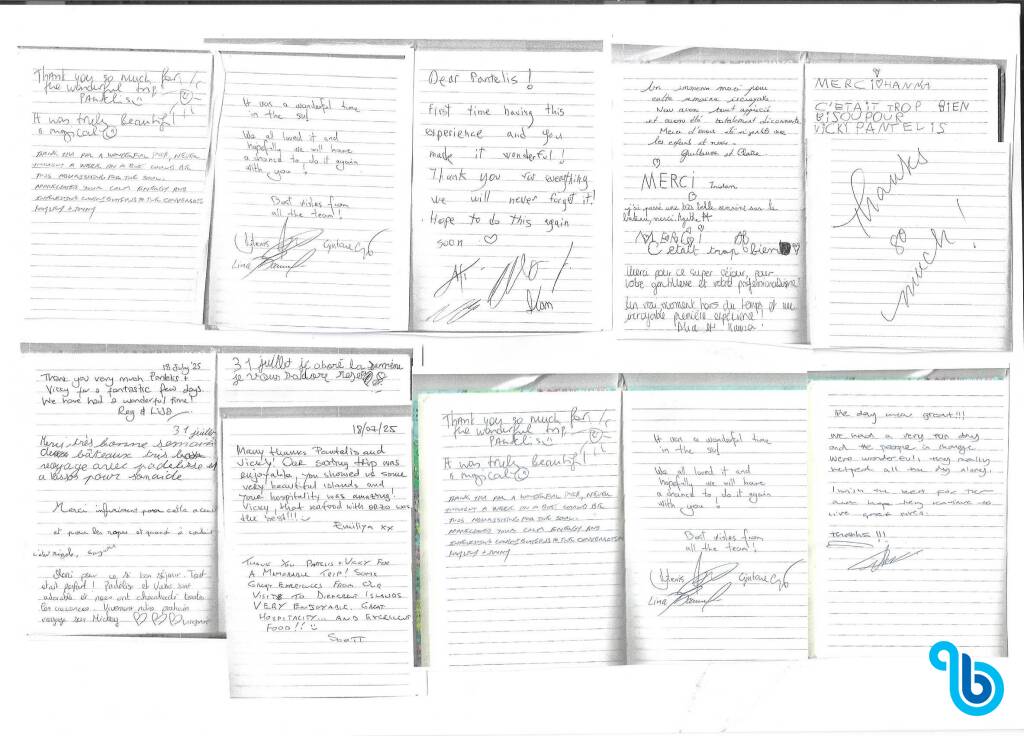 Thank you so much for
the wonderful trip
PANTELIS
It was truly beautiful!!!
& magical
THANK YOU FOR A WONDERFUL TRIP, NEVER
THOUGHT A WEEK ON A BOAT COULD BE
THIS NOURISHING FOR THE SOUL.
YOUR CALM ENERGY AND
It was a wonderful time
in the sea
We all loved it and
hopefully we will have
a chance to do it again
with you!
Best wishes from
all the team!
Lina
Dear Pantelis!
First time having this
experience and you
made it wonderful!
Thank you for everything
we will never forget it!
Hope to do this again
soon
Un immense merci pour
cette semaine incroyable
Nous avons tant apprécié
et avons été totalement déconnectés
Guillaume et Claire
MERCI
j'ai passé une très belle semaine sur le
bateau, merci Agathe
MERCI!
C'était trop bien
Merci pour ce super séjour, pour
votre gentillesse et votre professionnalisme!
Un vrai moment hors du temps et une
incroyable première expérience!!
MERCI HANNA
C'ÉTAIT TROP BIEN
BISOU POUR
VICKI PANTELIS
Thanks
so
much!
18 July '25
Thank you very much Pantelis +
Vicky for a fantastic few days.
We have had a wonderful time!
Reg & Lisa
31 juillet
Merci très bonne semaine
voyage avec
Merci infiniment pour cette
et pour les repas
Merci pour ce si bon séjour. Tout
était parfait! Pantelis et Vicky sont
adorables et nous ont chouchouté toutes
les vacances. Vivement notre prochain
voyage sur Mickey
31 juillet j'ai adoré la semaine
je vous adore
18/07/25
Many thanks Pantelis and
Vicky! Our sailing trip was
enjoyable, you showed us some
very beautiful islands and
your hospitality was amazing!
Vicky, that seafood with orzo was
the best!!!
Emiliya xx
THANK YOU PANTELIS + VICKY FOR
A MEMORABLE TRIP! SOME
GREAT EXPERIENCES FROM OUR
VISITS TO DIFFERENT ISLANDS
VERY ENJOYABLE. GREAT
HOSPITALITY... AND EXCELLENT
FOOD!!
SCOTT
Thank you so much for
the wonderful trip
PANTELIS
It was truly beautiful!!!
& magical
THANK YOU FOR A WONDERFUL TRIP, NEVER
THOUGHT A WEEK ON A BOAT COULD BE
THIS NOURISHING FOR THE SOUL.
YOUR CALM ENERGY AND
It was a wonderful time
in the sea
We all loved it and
hopefully we will have
a chance to do it again
with you!
Best wishes from
all the team!
Lina
The day was great!!!
We had a very fun day
and the people in charge
were wonderful, they really
helped all the day along.
I wish the best for them
and hope they continue to
give great vibes.
THANKS!!!